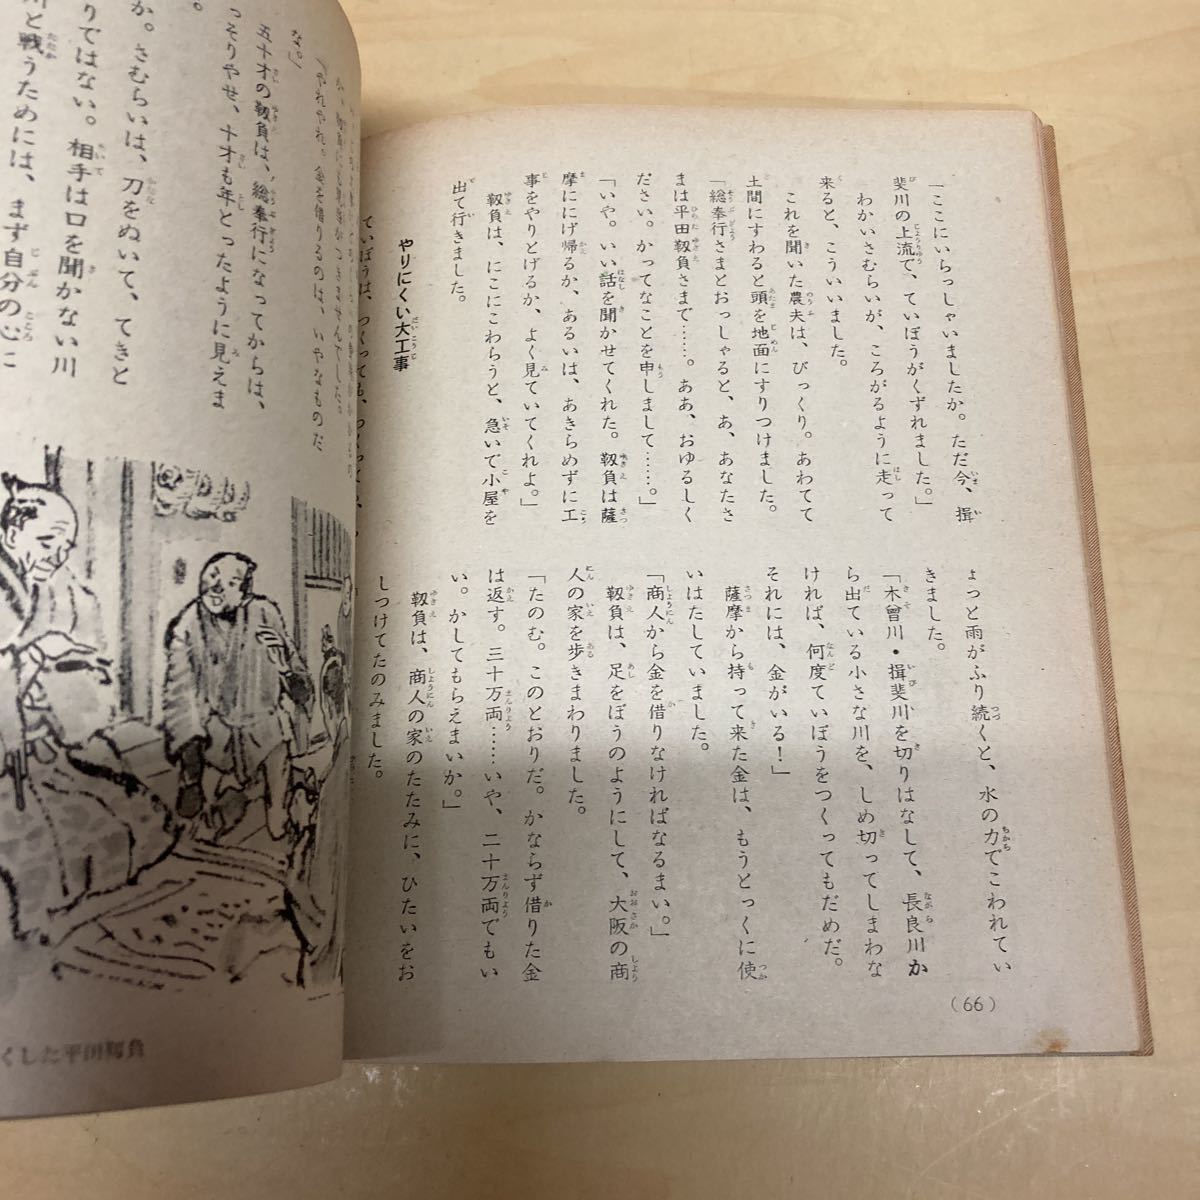 「ここにいらっしゃいましたか。ただ今、揖
斐川の上流で、ていぼうがくずれました。」
わかいさむらいが、ころがるように走って
来ると、こういいました。
これを聞いた農夫は、びっくり。あわてて
土間にすわると頭を地面にすりつけました。
「総奉行さまとおっしゃると、あ、あなたさ
まは平田靱負さまで……。ああ、おゆるしく
ださい。かってなことを申しまして……。」
「いや。いい話を聞かせてくれた。靱負は薩
摩ににげ帰るか、あるいは、あきらめずに工
事をやりとげるか、よく見ていてくれよ。」
靱負は、にこにこわらうと、急いで小屋を
出て行きました。
やりにくい大工事
ていぼうは、つくっても、つくっても、
ょっと雨がふり続くと、水の力でこわれてい
きました。
「木曾川・揖斐川を切りはなして、長良川か
ら出ている小さな川を、しめ切ってしまわな
ければ、何度ていぼうをつくってもだめだ。
それには、金がいる！」
薩摩から持って来た金は、もうとっくに使
いはたしていました。
「商人から金を借りなければなるまい。」
靱負は、足をぼうのようにして、大阪の商
人の家を歩きまわりました。
「たのむ。このとおりだ。かならず借りた金
は返す。三十万両……いや、二十万両でもい
い。かしてもらえまいか。」
靱負は、商人の家のたたみに、ひたいをお
しつけてたのみました。
(66)
「やれやれ。金を借りるのは、いやなものだ
な。」
五十才の靱負は、総奉行になってからは、
っそりやせ、十才も年とったように見えま
。
か。さむらいは、刀をぬいて、てきと
りではない。相手は口を聞かない川
川と戦うためには、まず自分の心に
くした平田靱負